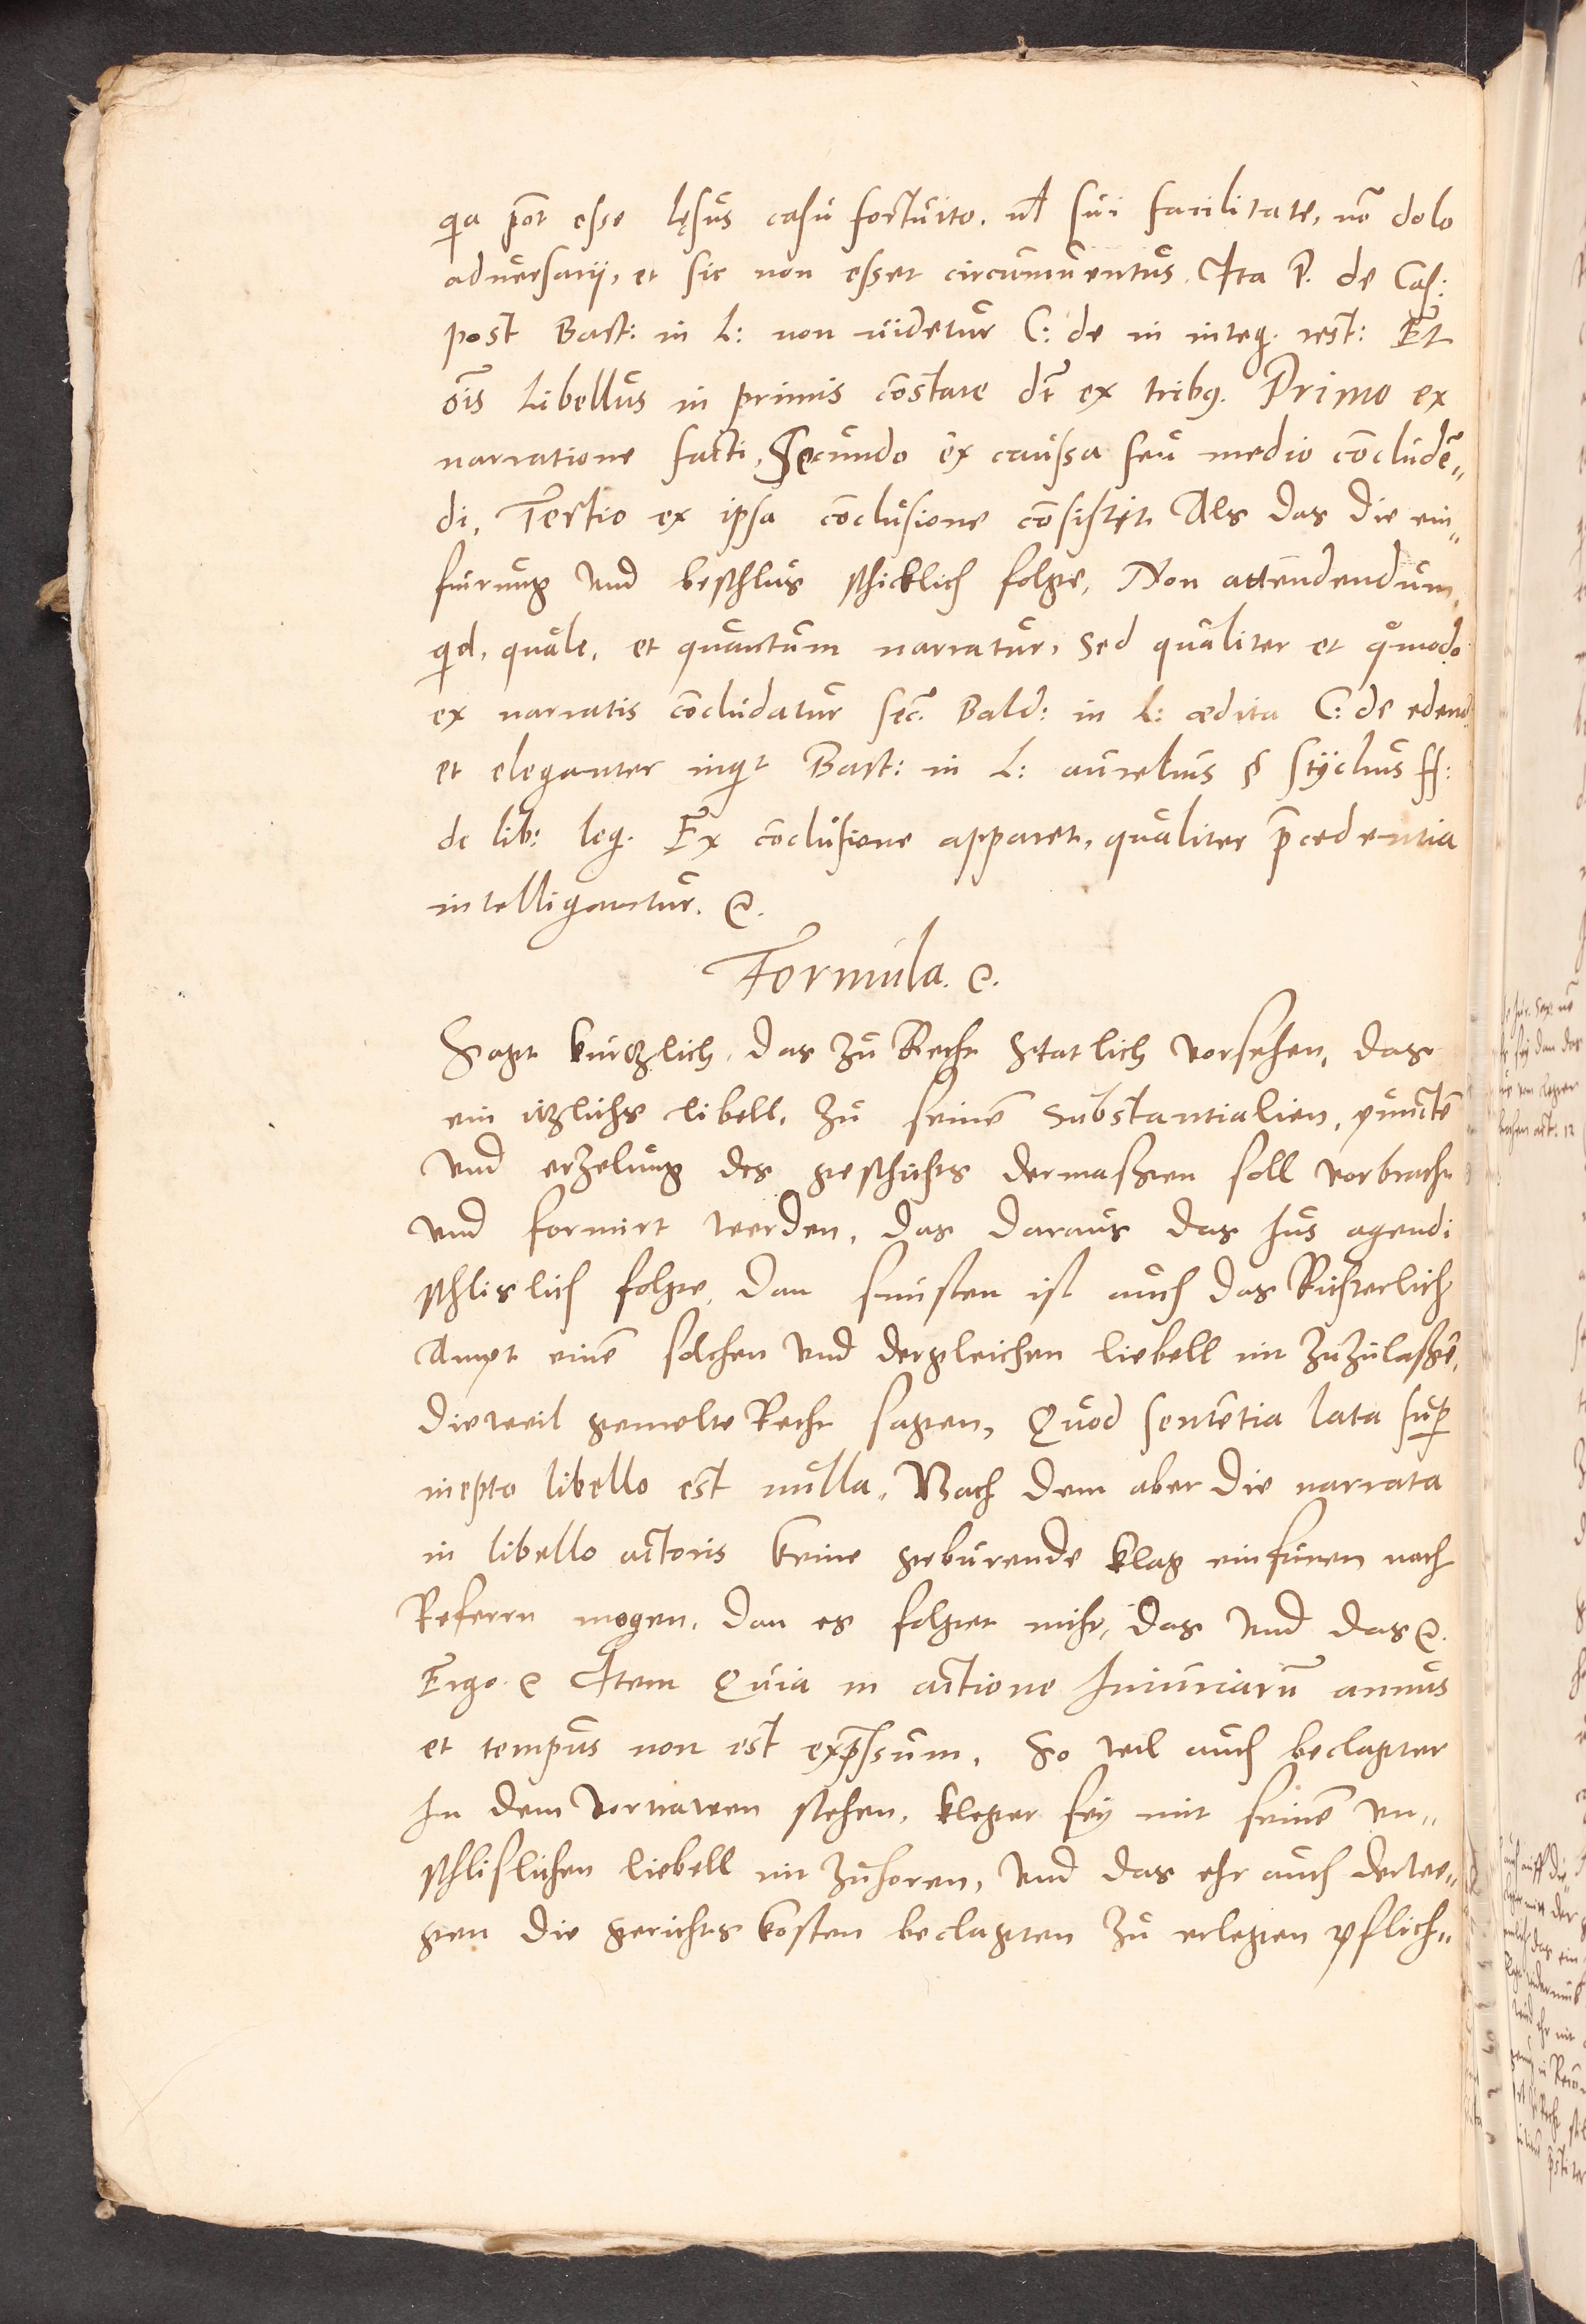 qia põt esse lęsus casu fortuito. ul sui facilitate, nõ dolo
aduersarij, et sic non esset circumuentus. Ita P. de Cas:
post Bart: in L: non uidetur C: de in integ. rest: Et
õis Libellus in primis cõstare dt̃ ex tribꝯ. Primo ex
narratione facti, Secundo ex caussa seu medio cõcludẽ„
di, Tertio ex ipsa cõclusione cõsistit. Als das die ein„
furung vnd beschlus schicklich folge, Non attendendum,
qid, quale, et quantum narratur, sed qualiter et q̊modo
ex narratis cõcludatur sec̃. Bald: in L: ædita C: de edend.
et eleganter inqit Bart: in L: aurelius § stÿchus ff:
de lib: leg. Ex cõclusione apparet, qualiter p̃cedentia
intelligantur. &.
Formula. &.
Sagt kurtzlich, das zu Recht Statlich vorsehen, das
ein itzlichs libell, zu seinẽ substantialien, punctẽ
vnd erzelung des geschichts dermassen soll vorbracht
vnd formirt werden, das daraus das Ius agendi
schlislich folge, dan sunsten ist auch das Richterlich
Ampt einẽ solchen vnd dergleichen liebell nit zuzulassẽ,
dieweil gemelte Recht sagen, Quod sentẽtia lata suꝑ
inepto libello est nulla, Nach dem aber die narrata
in libello actoris keine geburende klag einfuren noch
Referrn mogen, dan es folget nicht, das vnd das &.
Ergo & Item Quia in actione Iniuriarũ annus
et tempus non est exp̃ssum, So wil auch beclagter
In dem vortrawen stehen, kleger sey mit seinẽ vn„
schlislichen liebell nit zuhoren, vnd das ehr auch derwe„
gen die gerichts kosten beclagten zu erlegen pflich„